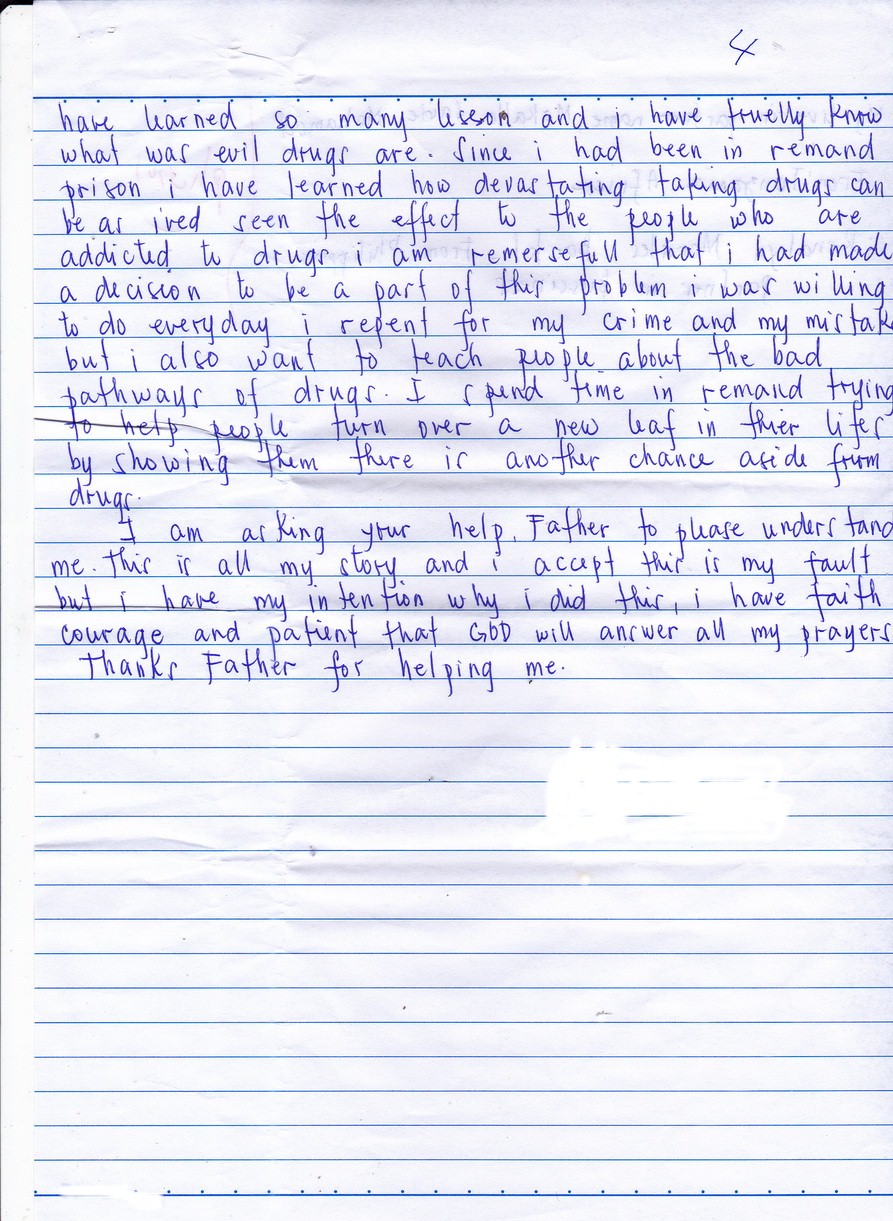 4
have learned so many lisson and i have truelly know
what was evil drugs are. Since i had been in remand
prison i have learned how devastating taking drugs can
be as ived seen the effect to the people who are
addicted to drugs i am remersefull that i had made
a decision to be a part of this problem i was willing
to do everyday i repent for my crime and my mistak
but i also want to teach people about the bad
pathways of drugs. I spend time in remand trying
to help people turn over a new leaf in thier lifes
by showing them there is another chance aside from
drugs.
I am asking your help, Father to please understand
me. this is all my story and i accept this is my fault
but i have my intention why i did this, i have faith
courage and patient that GOD will answer all my prayers
Thanks Father for helping me.